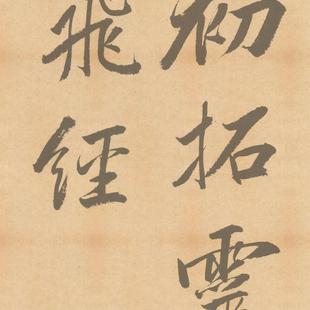 初拓靈
飛經